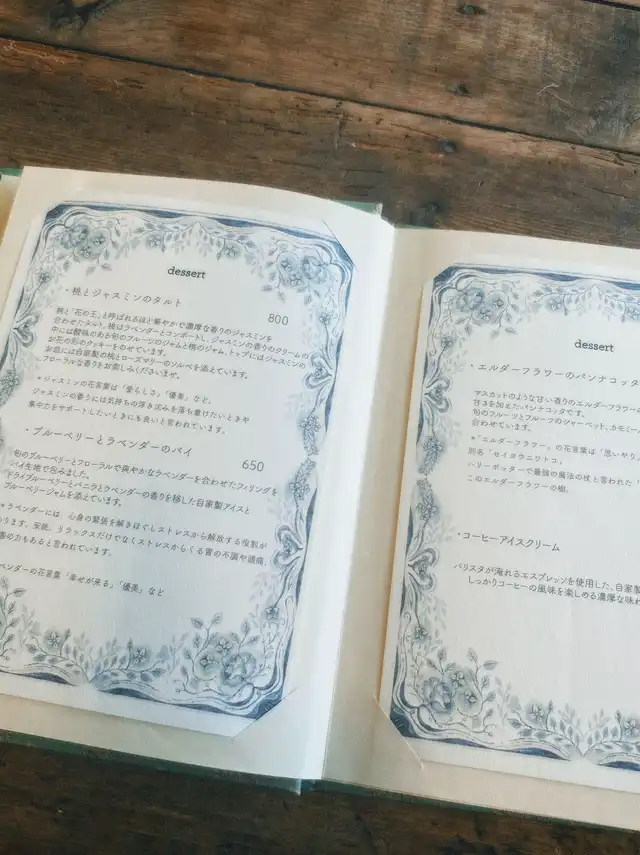 dessert
・桃とジャスミンのタルト
800
桃と「花の王」と呼ばれるほど華やかで濃厚な香りのジャスミンを
合わせたタルト。桃はラベンダーとコンポートし、ジャスミンの香りのクリームの
中には酸味のある旬のフルーツのジャムと桃のジャム、トップにはジャスミンの
お花の形のクッキーをのせています。
お皿には自家製の桃とローズマリーのソルベを添えています。
フローラルな香りをお楽しみくださいませ。
*ジャスミンの花言葉は「愛らしさ」「優美」など。
ジャスミンの香りには気持ちの浮き沈みを落ち着けたいときや
集中力をサポートしたいときにも良いと言われています。
・ブルーベリーとラベンダーのパイ
650
旬のブルーベリーとフローラルで爽やかなラベンダーを合わせたフィリングを
パイ生地で包みました。
ドライブルーベリーとバニラとラベンダーの香りを移した自家製アイスと
ブルーベリージャムを添えています。
*ラベンダーには 心身の緊張を解きほぐしストレスから解放する役割が
ります。安眠、リラックスだけでなくストレスからくる胃の不調や頭痛、
の力もあると言われています。
ベンダーの花言葉「幸せが来る」「優美」など
dessert
・エルダーフラワーのパンナコッタ
マスカットのような甘い香りのエルダーフラワー
甘さを加えたパンナコッタです。
旬のフルーツとフルーツのシャーベット、カモミー
合わせています。
*「エルダーフラワー」の花言葉は「思いやり」
別名「セイヨウニワトコ」
ハリーポッターで最強の魔法の杖と言われた「
このエルダーフラワーの樹。
・コーヒーアイスクリーム
バリスタが淹れるエスプレッソを使用した、自家製
しっかりコーヒーの風味を楽しめる濃厚な味わ